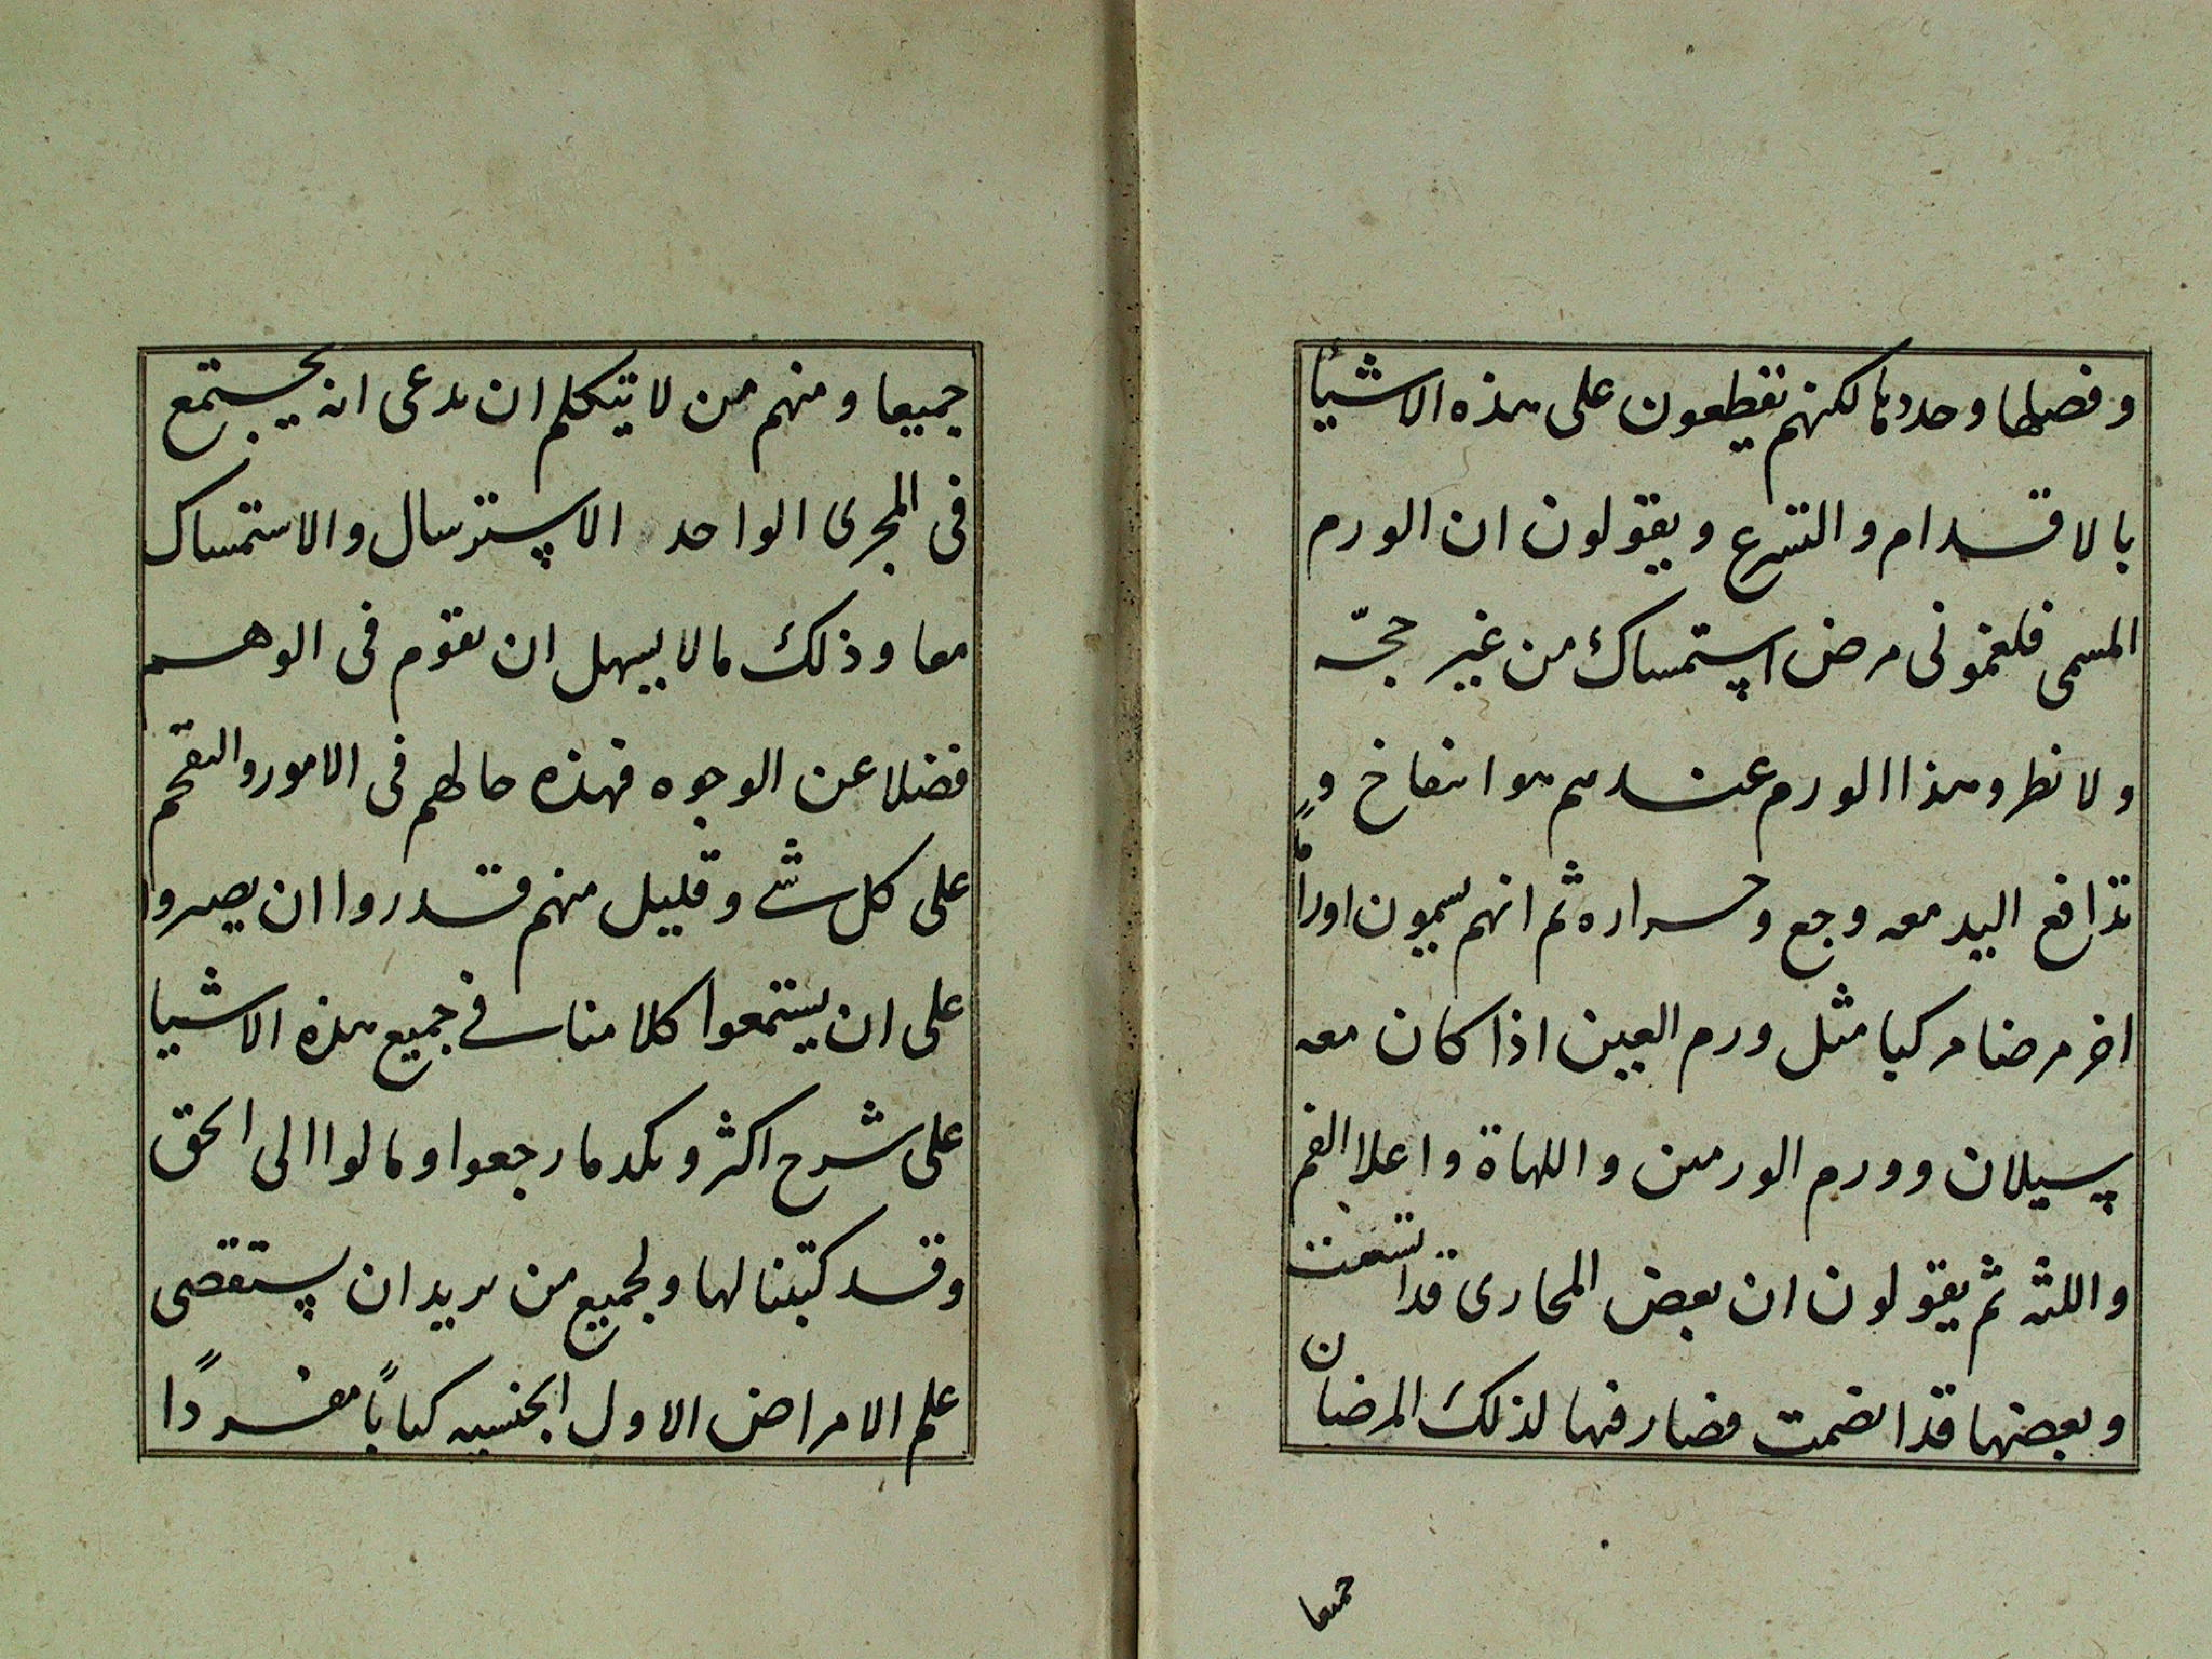 وفصلها وحددها لكنهم يقطعون على هذه الاشيأ
بالاقدام والتسرع ويقولون ان الورم
المسمى فلغمونى مرض استمساك من غير حجّه
ولا نظر وهذا الورم عندهم هو انتفاخ و
تدافع اليد معه وجع وحراره ثم انهم يسمون اوراماً
اخر مرضا مركبا مثل ورم العين اذا كان معه
سيلان وورم الورمىن واللهاة واعلا الفم
واللثه ثم يقولون ان بعض المجارى قد اتسعت
وبعضها قد انضمت فصار فيها لذلك المرضان
جميعا
جميعا ومنهم من لا يتكلم ان يدعى انه يجتمع
فى المجرى الواحد الاسترسال والاستمساك
معا وذلك مالا يسهل ان يقوم فى الوهم
فضلا عن الوجوه فهذه حالهم فى الامور والتقحم
على كل شے وقليل منهم قدروا ان يصبروا
على ان يستمعوا كلامنا فے جميع هذه الاشيا
على شرح اكثر وبكد ما رجعوا ومالوا الى الحق
وقد كتبنا لها ولجميع من يريد ان يستقصى
علم الامراض الاول الجنسيه كتاباً مفرداً